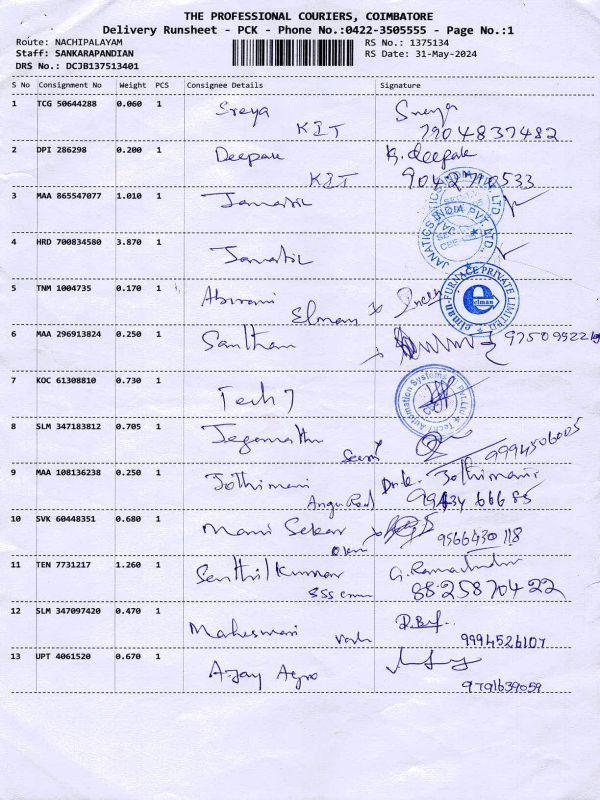 THE PROFESSIONAL COURIERS, COIMBATORE
Delivery Runsheet - PCK - Phone No.:0422-3505555 - Page No.:1
Route: NACHIPALAYAM RS No.: 1375134
Staff: SANKARAPANDIAN RS Date: 31-May-2024
DRS No.: DCJB137513401
S No Consignment No Weight PCS Consignee Details Signature
1 TCG 50644288 0.060 1 Sreya Sreya
KIT 7904837482
2 DPI 286298 0.200 1 Deepak K.deepak
KIT 9042710533
3 MAA 865547077 1.010 1 Janatic
JANATICS INDIA PVT. LTD.
4 HRD 700834580 3.870 1 Janatic
5 TNM 1004735 0.170 1 Abirami
Elman
elman FURNACE PRIVATE LIMITED
6 MAA 296913824 0.250 1 Santhan
7 KOC 61308810 0.730 1 Tech 7
Automation Systems
8 SLM 347183812 0.705 1 Jegannathn
9994506005
9 MAA 108136238 0.250 1 Jothimani Jothimani
99434 66685
10 SVK 60448351 0.680 1 Mani Sekar
9566430118
11 TEN 7731217 1.260 1 Senthil Kumar G. Ramachandran
88258 70422
12 SLM 347097420 0.470 1 Maheswari
9994526107
13 UPT 4061520 0.670 1 Ajay Agro
9791639059